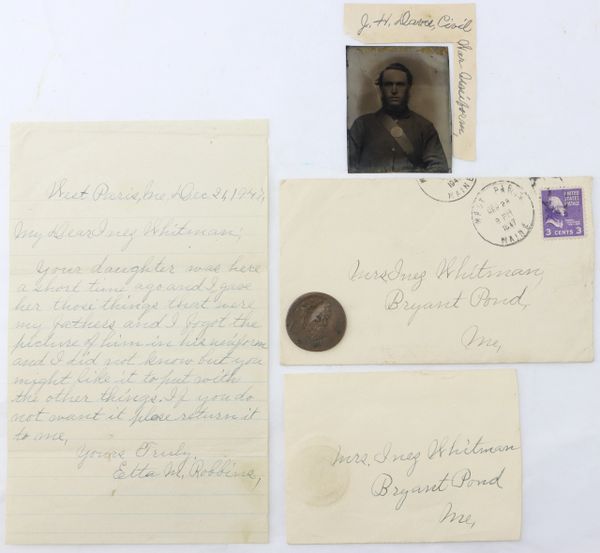 J. H. Davis, Civil
War Uniform,
West Paris, Me, Dec 21, 1947,
My Dear Inez Whitman;
Your daughter was here
a short time ago and I gave
her those things that were
my fathers and I fogot the
picture of him in his uniform
and I did not know but you
might like it to put with
the other things. If you do
not want it plese return it
to me,
Yours Truly,
Etta M. Robbins,
MAINE
WEST PARIS
DEC 22
PM
1947
MAINE
UNITED STATES
POSTAGE
3 CENTS 3
Mrs Inez Whitman,
Bryant Pond,
Me,
Mrs. Inez Whitman
Bryant Pond
Me,